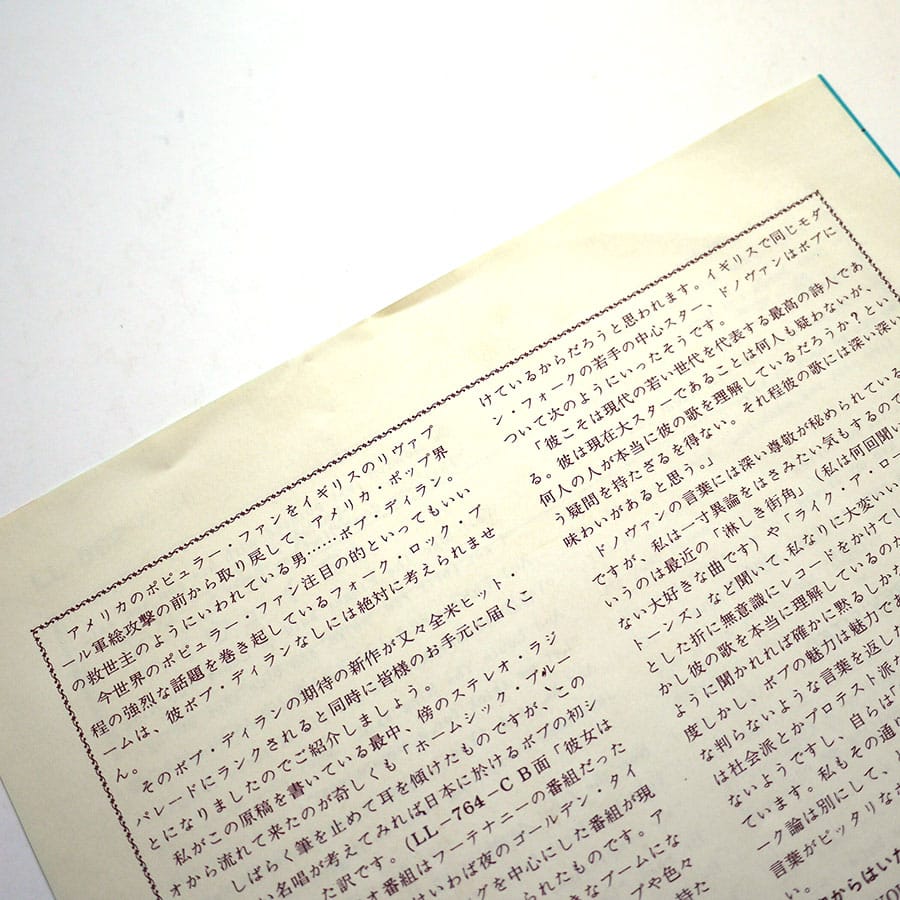 アメリカのポピュラー・ファンをイギリスのリヴァプ
ール軍総攻撃の前から取り戻して、アメリカ・ポップ界
の救世主のようにいわれている男……ボブ・ディラン。
今世界のポピュラー・ファン注目の的といってもいい
程の強烈な話題を巻き起しているフォーク・ロック・ブ
ームは、彼ボブ・ディランなしには絶対に考えられませ
ん。
そのボブ・ディランの期待の新作が又々全米ヒット・
パレードにランクされると同時に皆様のお手元に届くこ
とになりましたのでご紹介しましょう。
私がこの原稿を書いている最中、傍のステレオ・ラジ
オから流れて来たのが奇しくも「ホームシック・ブルー
しばらく筆を止めて耳を傾けたものですが、この
い名唱が考えてみれば日本に於けるボブの初シ
た訳です。(LL-764-C B面「彼女は
オ番組はフーテナニーの番組だった
はいわば夜のゴールデン・タイ
グを中心にした番組が現
られたものです。ア
きなブームにな
プや色々
持た
けているからだろうと思われます。イギリスで同じモダ
ン・フォークの若手の中心スター、ドノヴァンはボブに
ついて次のようにいったそうです。
「彼こそは現代の若い世代を代表する最高の詩人であ
る。彼は現在大スターであることは何人も疑わないが、
何人の人が本当に彼の歌を理解しているだろうか？とい
う疑問を持たざるを得ない。それ程彼の歌には深い深い
味わいがあると思う。」
ドノヴァンの言葉には深い尊敬が秘められている
ですが、私は一寸異論をはさみたい気もするので
いうのは最近の「淋しき街角」（私は何回聞い
ない大好きな曲です）や「ライク・ア・ロー
トーンズ」など聞いて、私なりに大変いい
とした折に無意識にレコードをかけてし
かし彼の歌を本当に理解しているのか
ように聞かれれば確かに黙るしかな
度しかし、ボブの魅力は魅力であ
な判らないような言葉を返した
は社会派とかプロテスト派だ
ないようですし、自らは「
ています。私もその通り
ーク論は別にして、
言葉がピッタリな
い。
からはいた